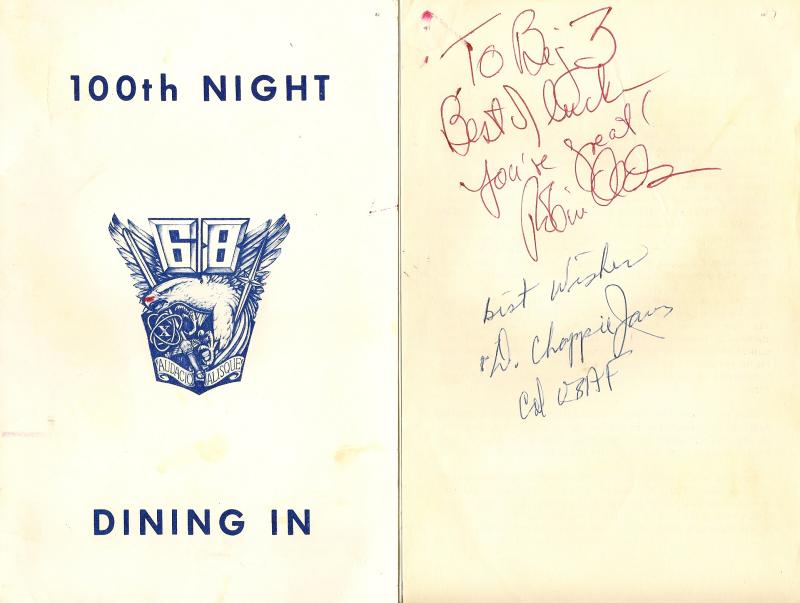 100th NIGHT
68
X
AUDACIO ALISQUE
DINING IN
To Big 3
Best of luck
you're great!
Robin Olds
Best Wishes
D. Chappie James
Col USAF